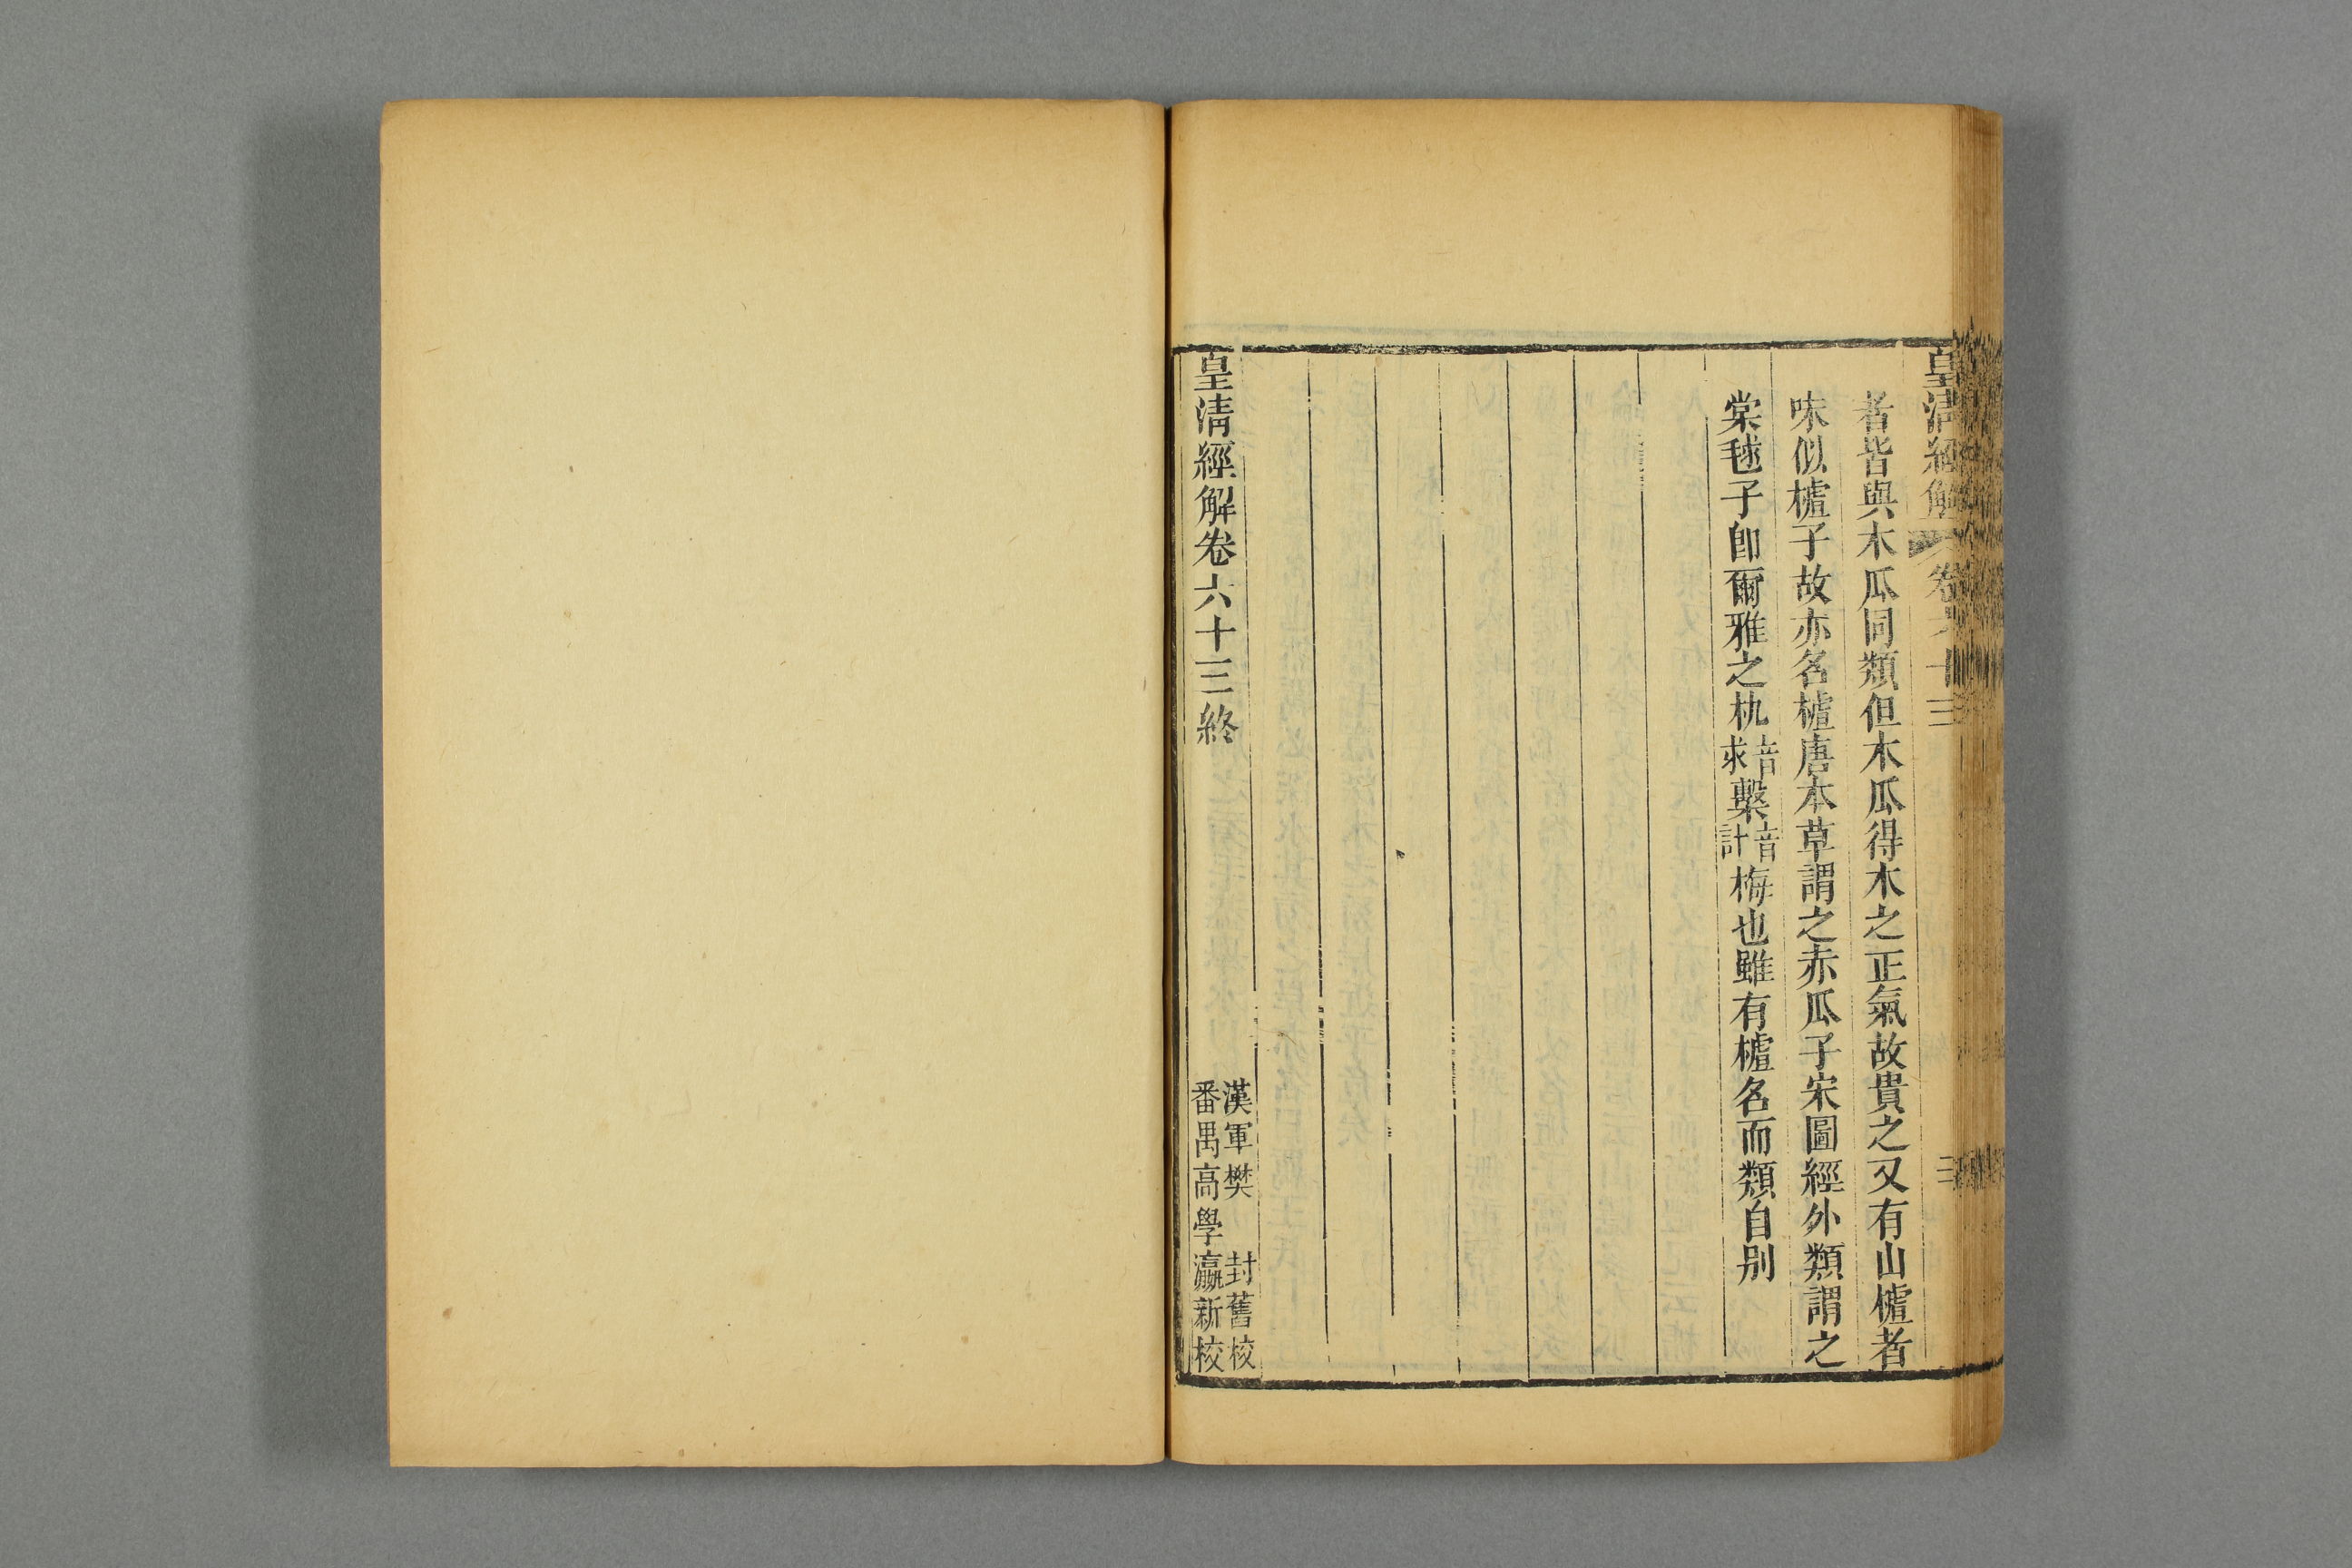 皇清經解 卷六十三
者皆與木瓜同類但木瓜得木之正氣故貴之又有山樝者
味似樝子故亦名樝唐本草謂之赤瓜子宋圖經外類謂之
棠毬子卽爾雅之朹音求檕音計梅也雖有樝名而類自別
皇清經解卷六十三終
漢軍樊封舊校
番禺高學瀛新校